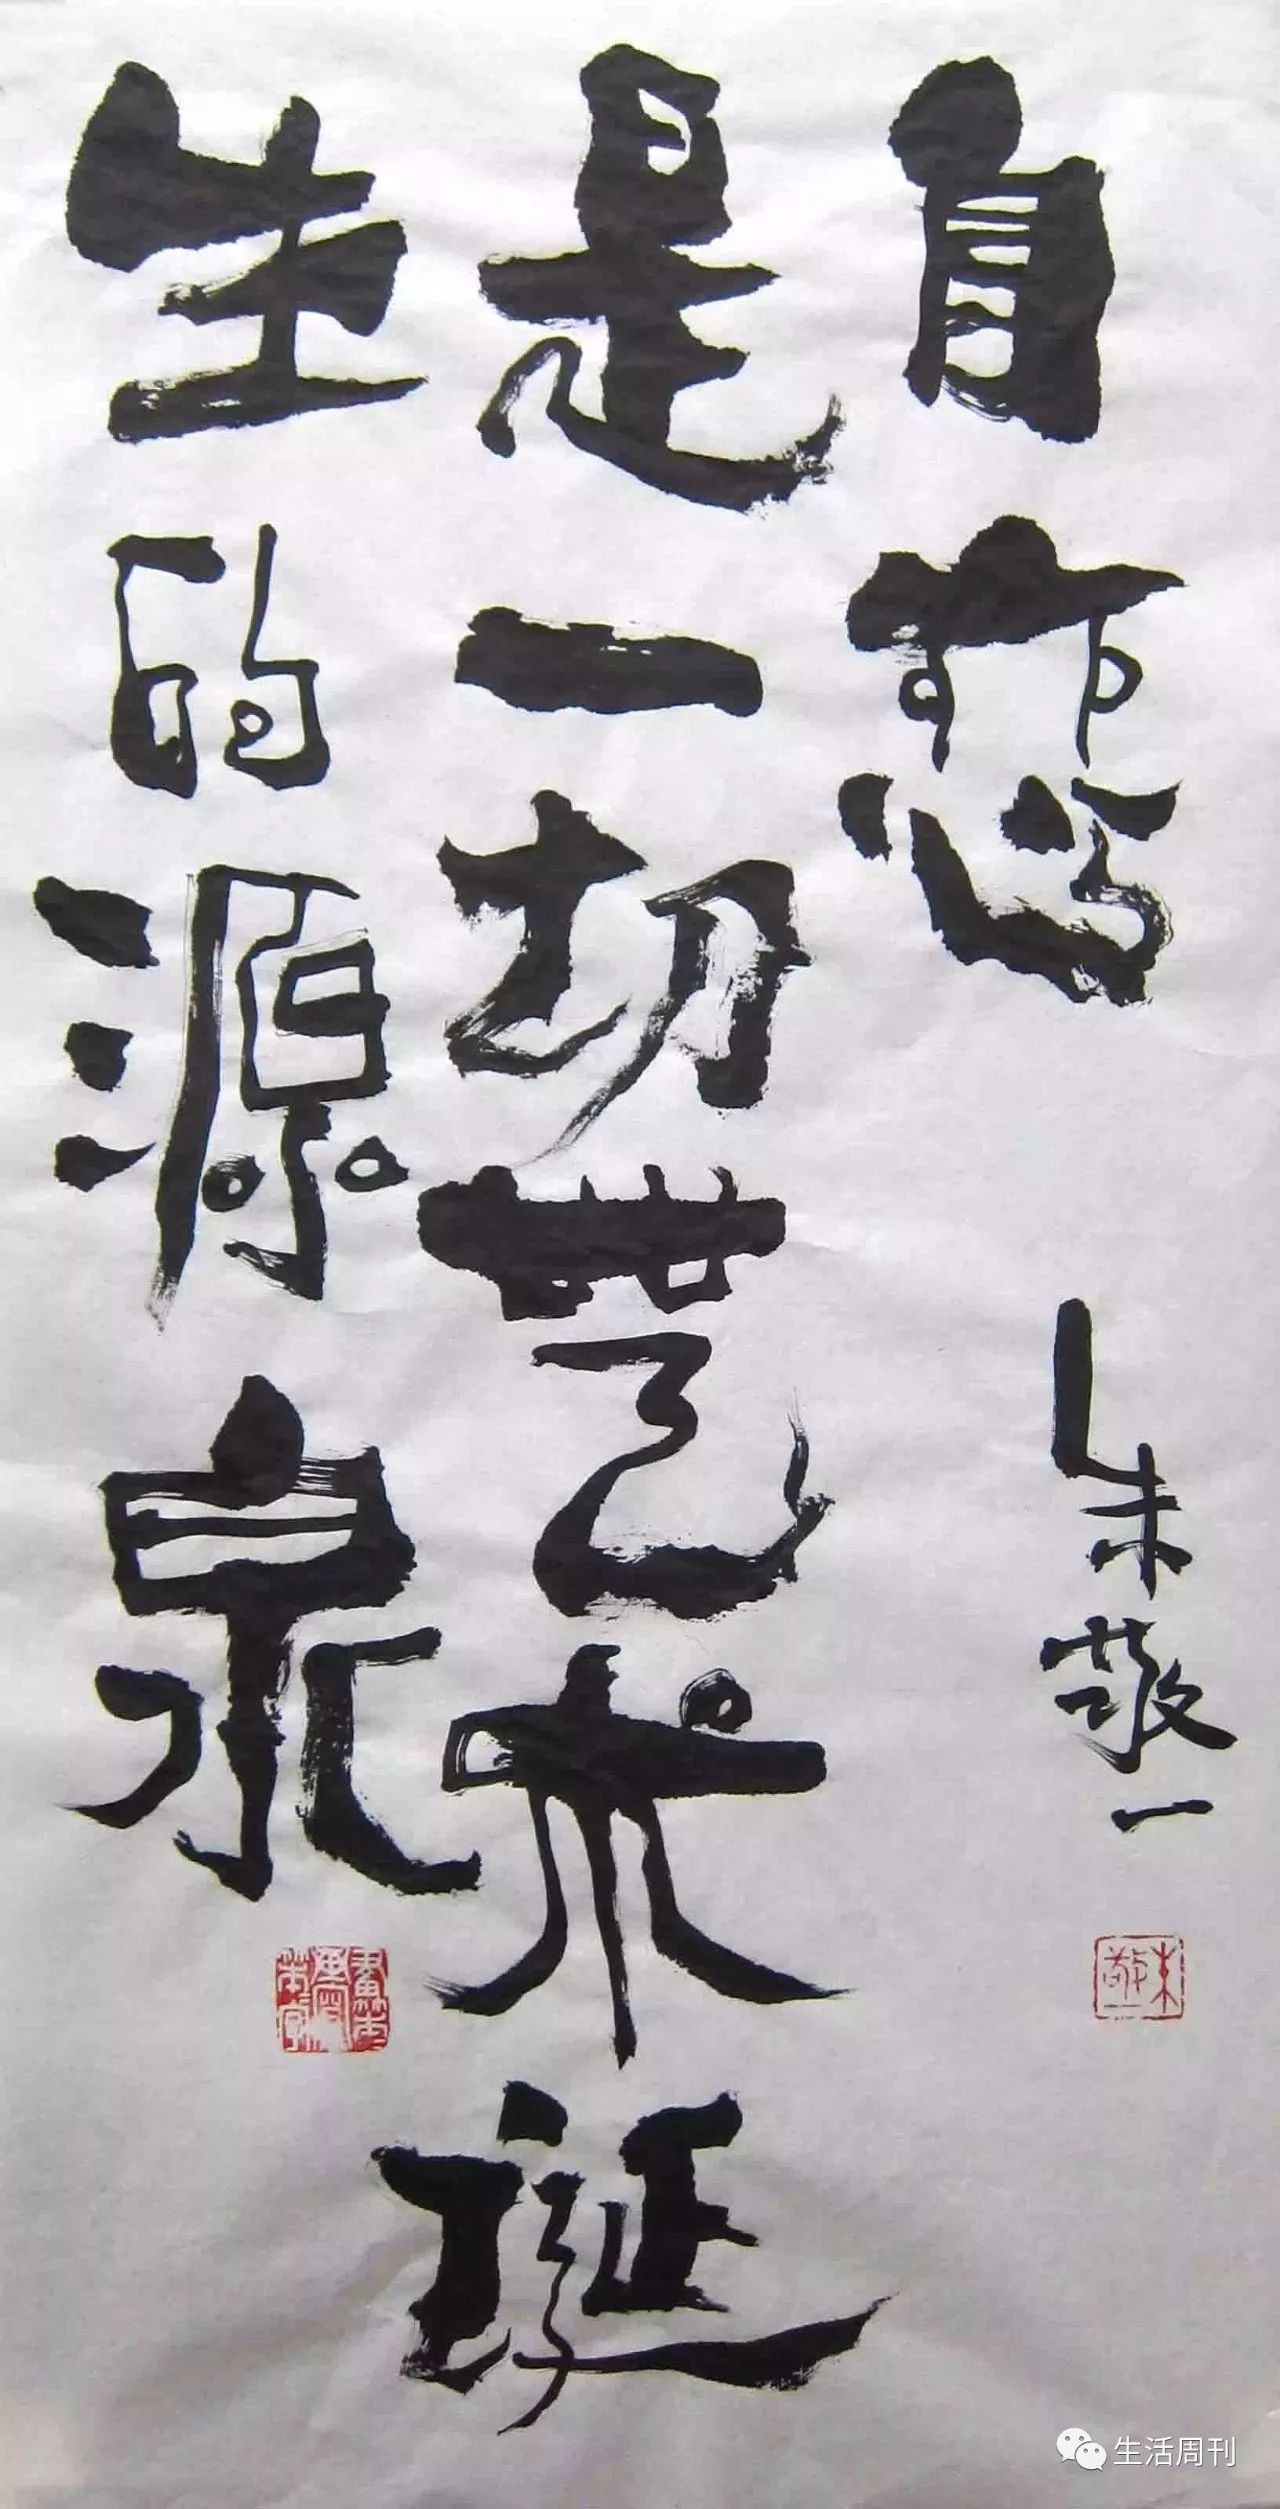 自恋
是一切艺术诞
生的源泉
朱敬一
朱敬一
生活周刊